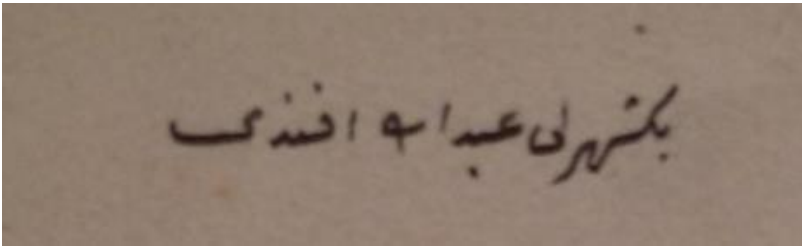 یكیشهرلی عبدالله افندی